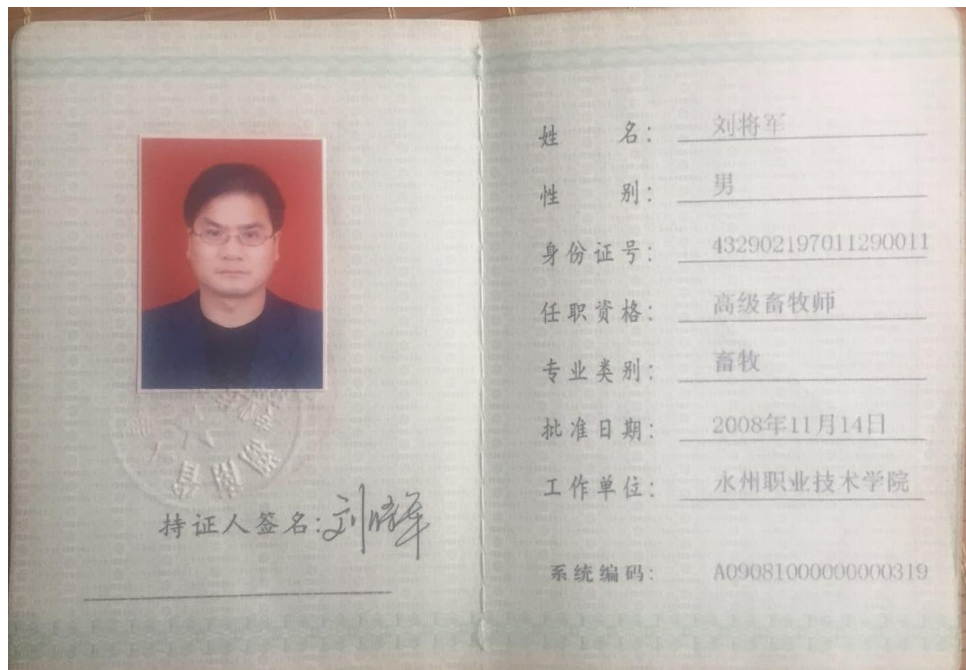 持证人签名:刘将军
姓 名: 刘将军
性 别: 男
身份证号: 432902197011290011
任职资格: 高级畜牧师
专业类别: 畜牧
批准日期: 2008年11月14日
工作单位: 永州职业技术学院
系统编码: A09081000000000319